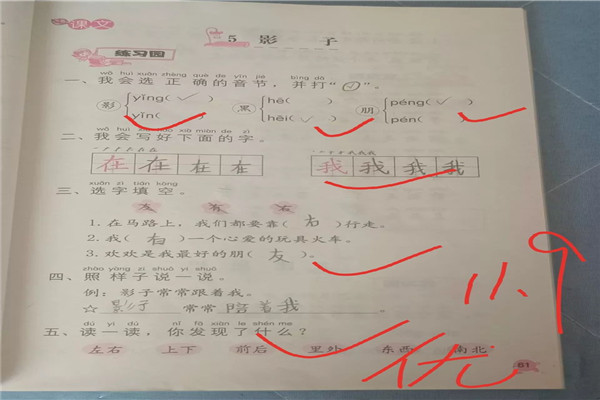 课文
5 影子
练习园
wǒ huì xuǎn zhèng què de yīn jié bìng dǎ
一、我会选正确的音节，并打“✓”。
影 yǐng( ✓ ) 黑 hē( ) 朋 péng( ✓ )
yǐn( ) hēi( ✓ ) pén( )
wǒ huì xiě hǎo xià miàn de zì
二、我会写好下面的字。
在 在 在 在 我 我 我 我
xuǎn zì tián kòng
三、选字填空。
友 有 右
1. 在马路上，我们都要靠（右）行走。
2. 我（有）一个心爱的玩具火车。
3. 欢欢是我最好的朋（友）。
zhào yàng zi shuō yi shuō
四、照样子说一说。
例：影子常常跟着我。
☆ 常常陪着我
dú yi dú nǐ fā xiàn le shén me
五、读一读，你发现了什么？
左右 上下 前后 里外 东西 南北
61
11.9
优